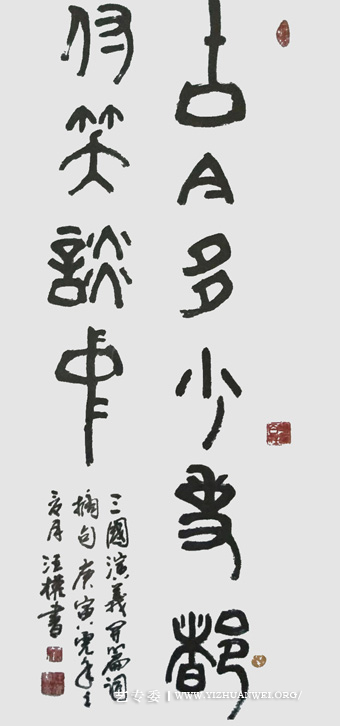 古今多少事都
付笑談中
三國演義開篇詞
摘句庚寅虎年之
夏月汪權書
艺专委 | WWW.YIZHUANWEI.ORG/